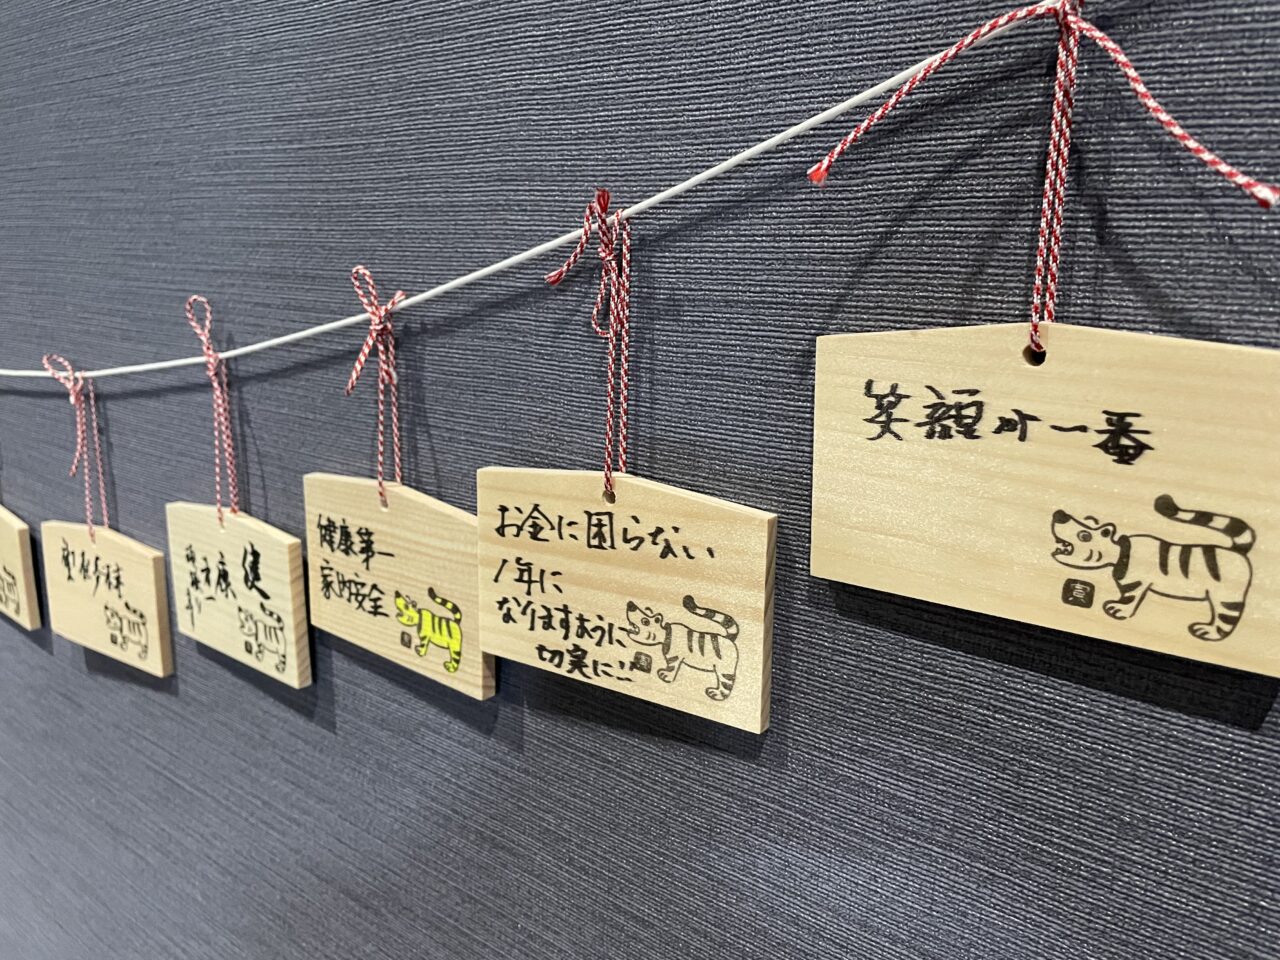 笑顔が一番
お金に困らない
1年に
なりますように
切実に!!
健康第一
家内安全
健
康